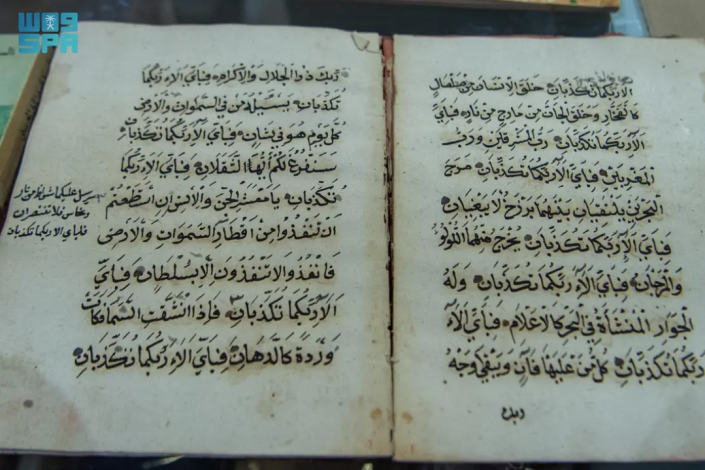 واس
SPA
الآء ربكما تكذبان خلق الانسان من صلصال
كالفخار وخلق الجان من مارج من نار فبأي
الآء ربكما تكذبان رب المشرقين ورب
المغربين فبأي الآء ربكما تكذبان مرج
البحرين يلتقيان بينهما برزخ لا يبغيان
فبأي الآء ربكما تكذبان يخرج منهما اللؤلؤ
والمرجان فبأي الآء ربكما تكذبان وله
الجوار المنشأة في البحر كالاعلام فبأي الآء
ربكما تكذبان كل من عليها فان ويبقى وجه
ربك
ربك ذو الجلال والاكرام فبأي الآء ربكما
تكذبان يسئله من في السموات والارض
كل يوم هو في شان فبأي الآء ربكما تكذبان
سنفرغ لكم أيها الثقلان فبأي الآء ربكما
تكذبان يا معشر الجن والانس ان استطعتم
ان تنفذوا من أقطار السموات والارض
فانفذوا لا تنفذون الا بسلطان فبأي
الآء ربكما تكذبان فإذا انشقت السماء فكانت
وردة كالدهان فبأي الآء ربكما تكذبان
يرسل عليكما شواظ من نار
ونحاس فلا تنتصران
فبأي الآء ربكما تكذبان